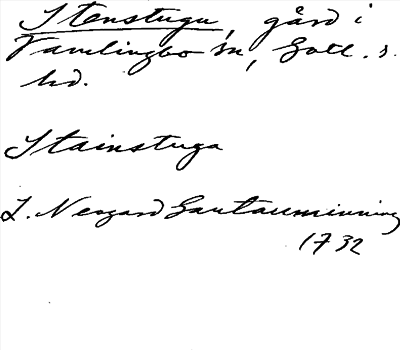 Stenstugu, gård i
Vamlingbo sn, Gotl. s.
hd.
Stainstuga
L. Neogard Gautauminning
1732